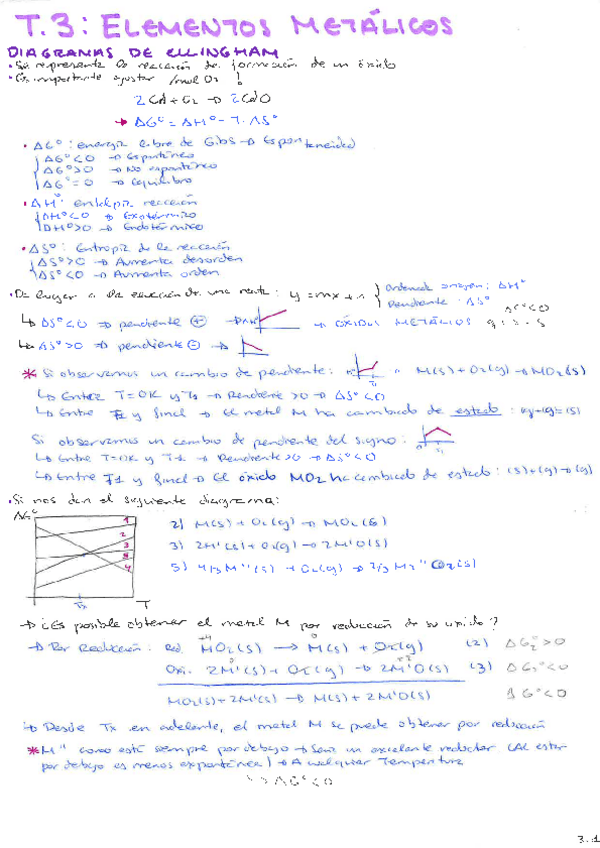 T.3: ELEMENTOS METÁLICOS
DIAGRAMAS DE ELLINGHAM
• Se representa la reacción de formación de un óxido
• Es importante ajustar /mol O2 !
2Cd + O2 → 2CdO
→ ΔG° = ΔH° - T·ΔS°
• ΔG°: energía libre de Gibbs → Espontaneidad
ΔG°<0 → Espontáneo
ΔG°>0 → No espontáneo
ΔG°=0 → Equilibrio
• ΔH°: entalpía reacción
ΔH°<0 → Exotérmico
ΔH°>0 → Endotérmico
• ΔS°: Entropía de la reacción
ΔS°>0 → Aumenta desorden
ΔS°<0 → Aumenta orden
• Da lugar a la ecuación de una recta: y=mx+n
Ordenada origen: ΔH°
Pendiente: ΔS°
ΔS°<0
↳ ΔS°<0 → pendiente ⊕ → → ÓXIDOS METÁLICOS
↳ ΔS°>0 → pendiente ⊖ →
* Si observamos un cambio de pendiente: M(s)+O2(g)→MO2(s)
↳ Entre T=0K y → Pendiente >0 → ΔS°<0
↳ Entre y final → El metal M ha cambiado de estado:
Si observamos un cambio de pendiente del signo:
↳ Entre T=0K y T1 → Pendiente>0 → ΔS°<0
↳ Entre T1 y final → El óxido MO2 ha cambiado de estado: (s)+(g)→(g)
• Si nos dan el siguiente diagrama:
ΔG°
1
2
3
5
4
Tx
T
2) M(s) + O2(g) → MO2(s)
3) 2M'(s) + O2(g) → 2M'O(s)
5) 4/3 M''(s) + O2(g) → 2/3 M2''O3(s)
→ ¿Es posible obtener el metal M por reducción de su óxido?
→ Por Reducción: Red. MO2(s) → M(s) + O2(g) (2) ΔG2°>0
Oxi. 2M'(s) + O2(g) → 2M'O(s) (3) ΔG3°<0
MO2(s)+2M'(s) → M(s) + 2M'O(s) ΔG°<0
→ Desde Tx en adelante, el metal M se puede obtener por reducción
* M'' como está siempre por debajo → Será un excelente reductor (Al estar
por debajo es menos espontánea) → A cualquier Temperatura
↳ ΔG°<0
3.1